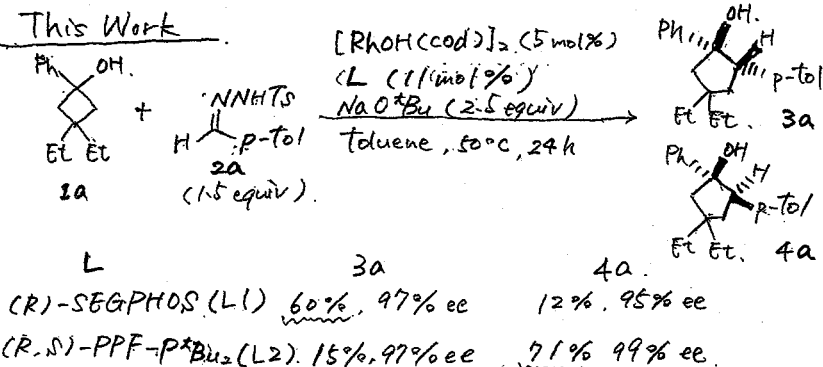 This Work
Ph OH.
Et Et
1a
+
NNHTs
H p-tol
2a
(1.5 equiv).
[RhOH(cod)]₂ (5 mol%)
L (11 mol%)
NaOᵗBu (2.5 equiv)
toluene, 50°C, 24 h
Ph OH. H
p-tol
Et Et. 3a
Ph OH H
p-tol
Et Et. 4a
L 3a 4a.
(R)-SEGPHOS (L1) 60%, 97% ee 12%, 95% ee
(R,S)-PPF-PᵗBu₂ (L2). 15%, 97% ee 71% 99% ee.